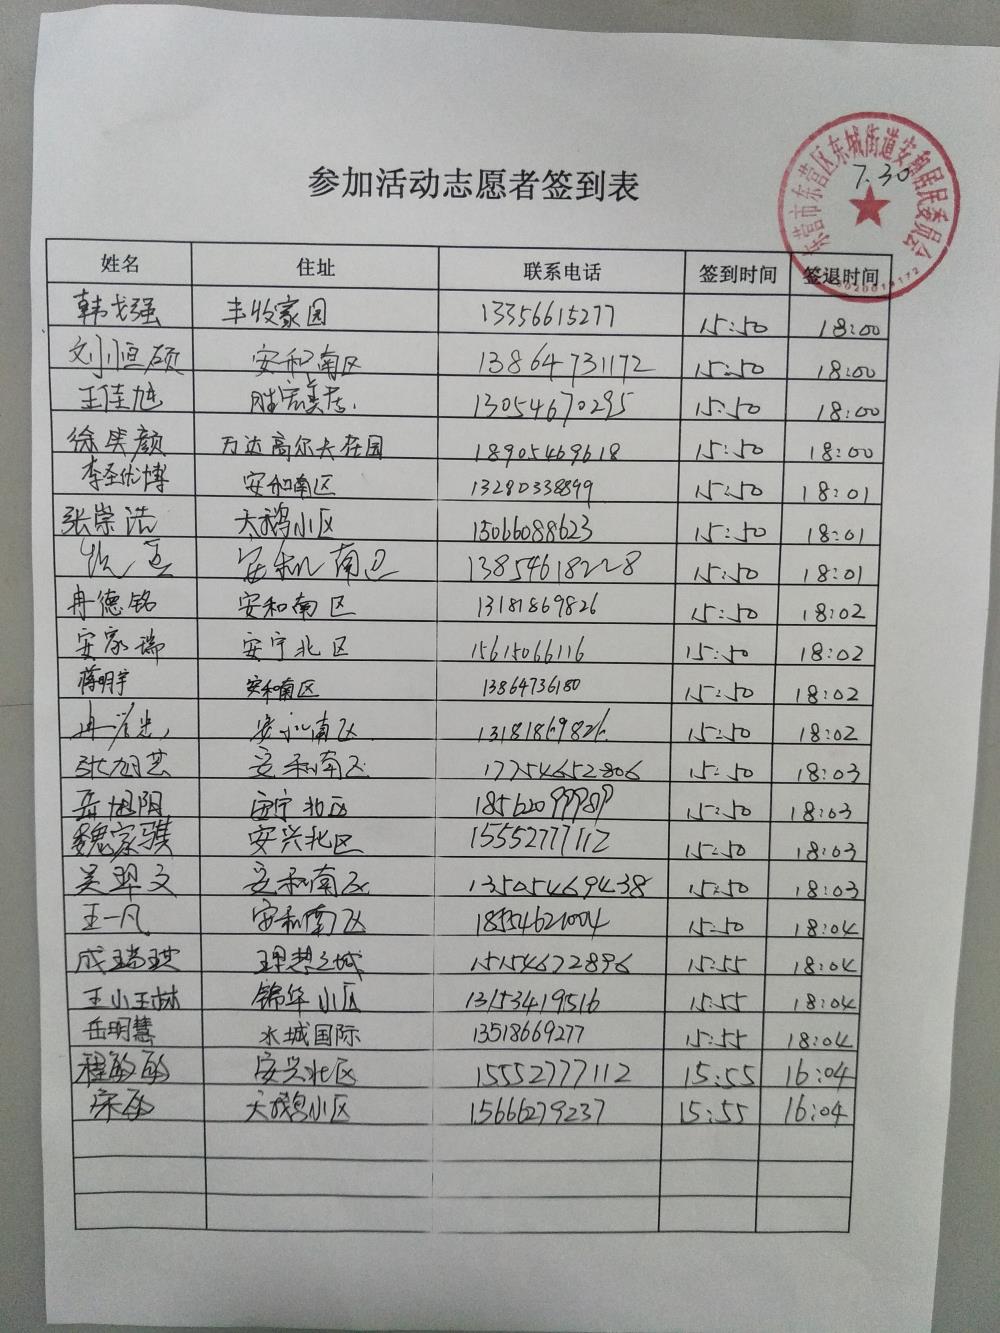 东营市东营区东城街道安和居民委员会
7.30
参加活动志愿者签到表
姓名 住址 联系电话 签到时间 签退时间
韩戈强 丰收家园 13356615277 15:50 18:00
刘恒硕 安和南区 13864731172 15:50 18:00
王佳旭 胜宏美居. 13054670295 15:50 18:00
徐笑颜 万达高尔夫花园 18905469618 15:50 18:00
李圣优博 安和南区 13280338899 15:50 18:01
张崇浩 天鹅小区 15066088623 15:50 18:01
安和南区 13854618228 15:50 18:01
冉德铭 安和南区 13181869826 15:50 18:02
安家瑞 安宁北区 15615066116 15:50 18:02
蒋明宇 安和南区 13864736180 15:50 18:02
安和南区 13181869826 15:50 18:02
张旭芸 安和南区 17754652806 15:50 18:03
岳旭阳 安宁北区 15:50 18:03
魏家骥 安兴北区 15552777112 15:50 18:03
吴翠文 安和南区 13505469438 15:50 18:03
王一凡 安和南区 18554621004 15:50 18:04
成瑞琪 理想之城 15154672896 15:55 18:04
王小琳 锦华小区 13153419516 15:55 18:04
岳明慧 水城国际 13518669277 15:55 18:04
程敏敏 安兴北区 15552777112 15:55 16:04
天鹅小区 15666279237 15:55 16:04